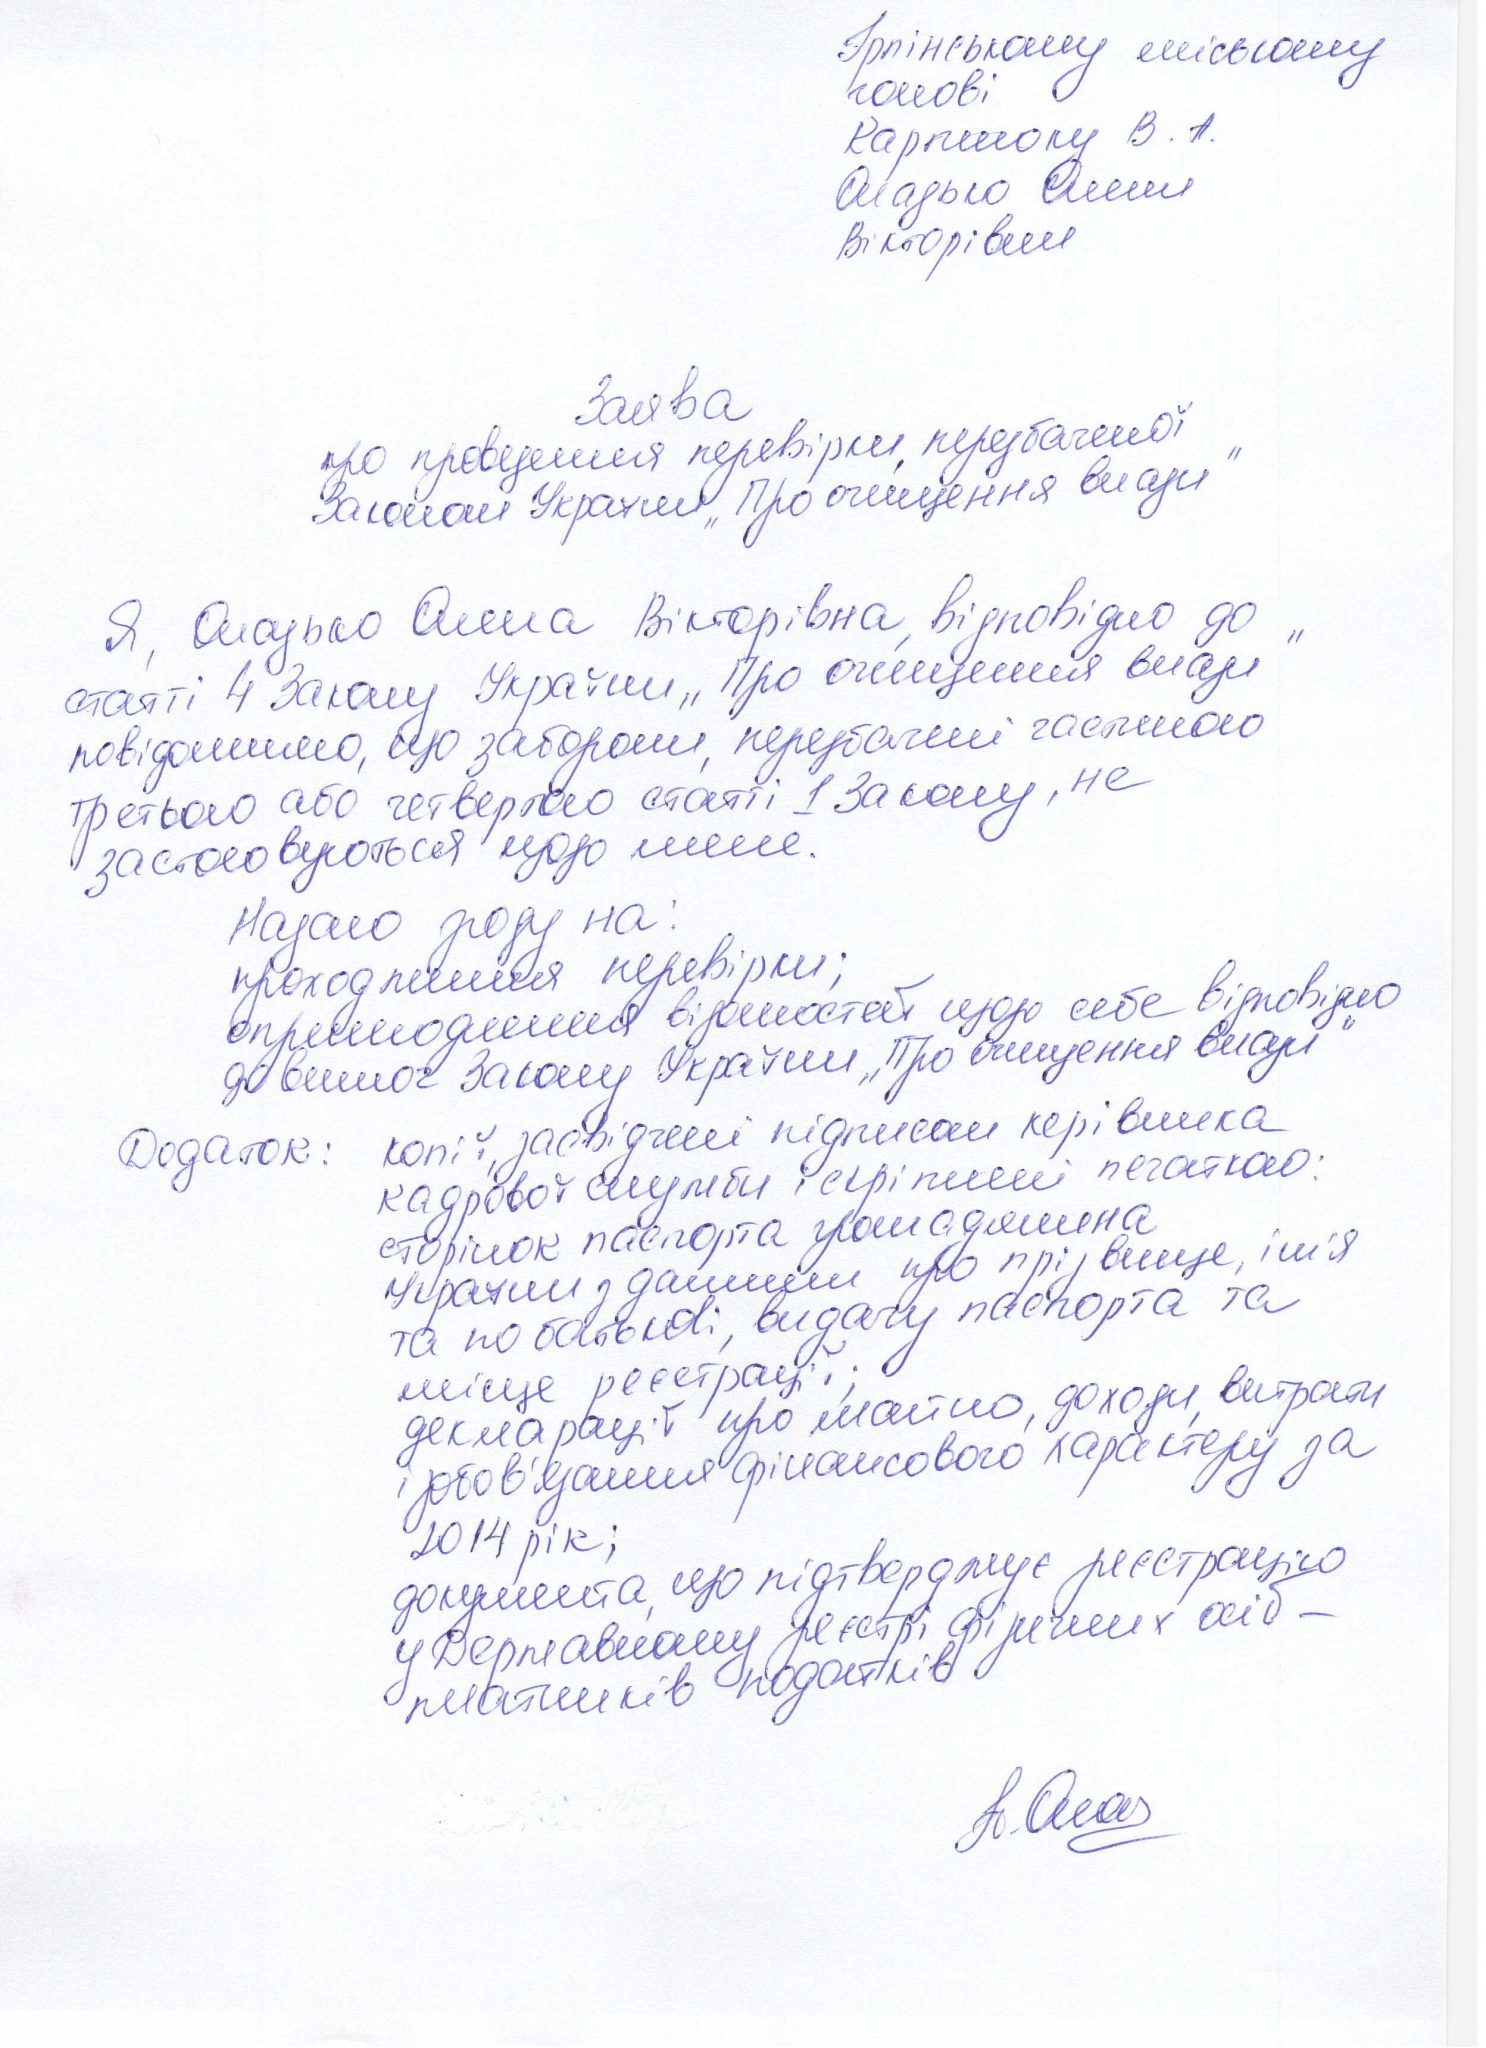 Ірпінському міському
голові
Карплюку В. А.
Оладько Анни
Вікторівни
Заява
про проведення перевірки, передбаченої
Законом України „Про очищення влади"
Я, Оладько Анна Вікторівна, відповідно до
статті 4 Закону України „Про очищення влади"
повідомляю, що заборони, передбачені частиною
третьою або четвертою статті 1 Закону, не
застосовуються щодо мене.
Надаю згоду на:
проходження перевірки;
оприлюднення відомостей щодо себе відповідно
до вимог Закону України „Про очищення влади"
Додаток: копії, засвідчені підписом керівника
кадрової служби і скріплені печаткою:
сторінок паспорта громадянина
України з даними про прізвище, ім'я
та по батькові, видачу паспорта та
місце реєстрації;
декларації про майно, доходи, витрати
і зобов'язання фінансового характеру за
2014 рік;
документа, що підтверджує реєстрацію
у Державному реєстрі фізичних осіб –
платників податків